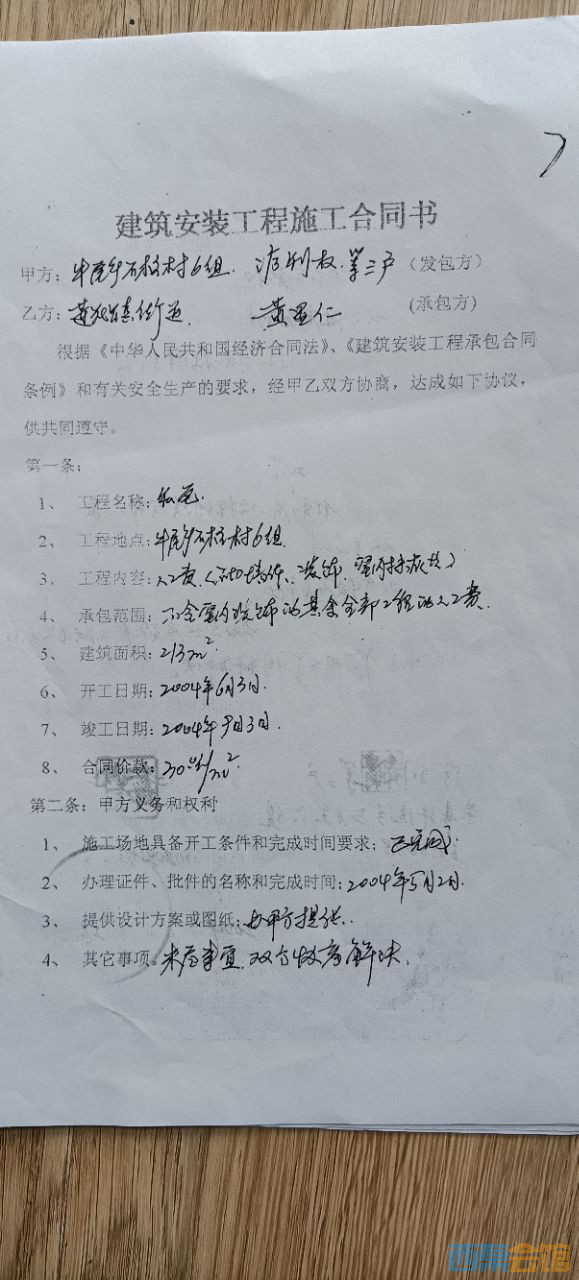 建筑安装工程施工合同书
甲方：石板村6组. 第三户（发包方）
乙方：街道. 黄 仁 (承包方)
根据《中华人民共和国经济合同法》、《建筑安装工程承包合同
条例》和有关安全生产的要求，经甲乙双方协商，达成如下协议，
供共同遵守。
第一条：
1、 工程名称：
2、 工程地点：石板村6组.
3、 工程内容：人工费
4、 承包范围：不含室内装饰的其余全部工程的人工费.
5、 建筑面积：213m².
6、 开工日期：2004年6月3日.
7、 竣工日期：2004年9月3日.
8、 合同价款：30元/m².
第二条：甲方义务和权利
1、 施工场地具备开工条件和完成时间要求：已完成.
2、 办理证件、批件的名称和完成时间：2004年5月2日.
3、 提供设计方案或图纸：由甲方提供.
4、 其它事项。未尽事宜.双方协商解决.
西泵会馆